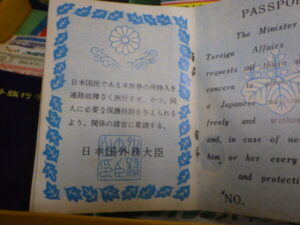 日本国民である本旅券の所持人を
通路故障なく旅行させ、かつ、同
人に必要な保護扶助を与えられる
よう、関係の諸官に要請する。
日本国外務大臣
PASSPO
The Minister
Foreign Affairs
requests all
concern
a Japanese
freely and without
and, in case of nee
him or her every
and protecti
NO.